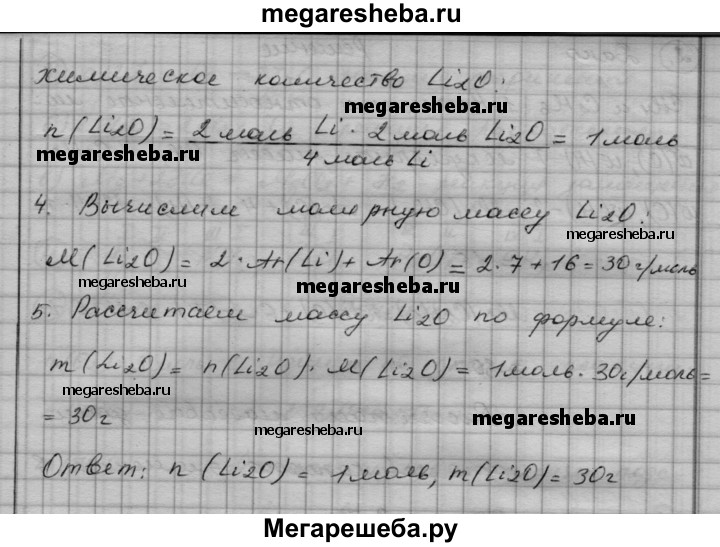 megaresheba.ru
химическое количество Li2O:
megaresheba.ru
n(Li2O) = 2 моль Li · 2 моль Li2O / 4 моль Li = 1 моль
megaresheba.ru
4. Вычислим молярную массу Li2O:
megaresheba.ru
M(Li2O) = 2 · Ar(Li) + Ar(O) = 2 · 7 + 16 = 30 г/моль
megaresheba.ru
megaresheba.ru
5. Рассчитаем массу Li2O по формуле:
m(Li2O) = n(Li2O) · M(Li2O) = 1 моль · 30 г/моль =
megaresheba.ru
= 30 г
megaresheba.ru
megaresheba.ru
Ответ: n(Li2O) = 1 моль, m(Li2O) = 30 г
Мегарешеба.ру